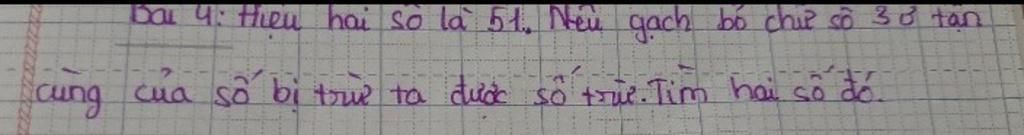 Bài 4: Hiệu hai số là 51. Nếu gạch bỏ chữ số 3 ở tận
cùng của số bị trừ ta được số trừ. Tìm hai số đó.